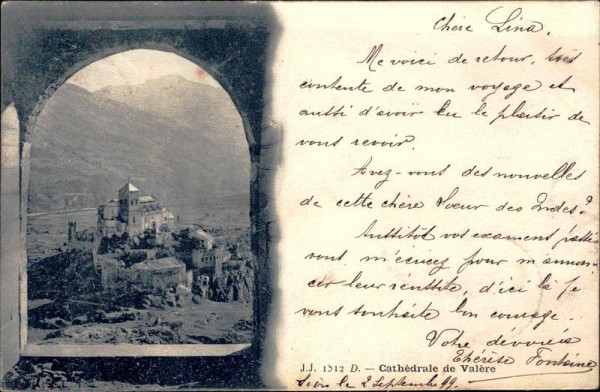 Chère Lina,
Me voici de retour, très
contente de mon voyage et
aussi d'avoir eu le plaisir de
vous revoir.
Avez-vous des nouvelles
de cette chère Sœur des Indes?
Aussitôt vos examens passés
vous m'écrirez pour m'annon-
cer leur réussite, d'ici là je
vous souhaite bon courage.
Votre dévouée
Thérèse Fontaine
J.J. 1512 D. — Cathédrale de Valère
Sion le 2 Septembre 99.